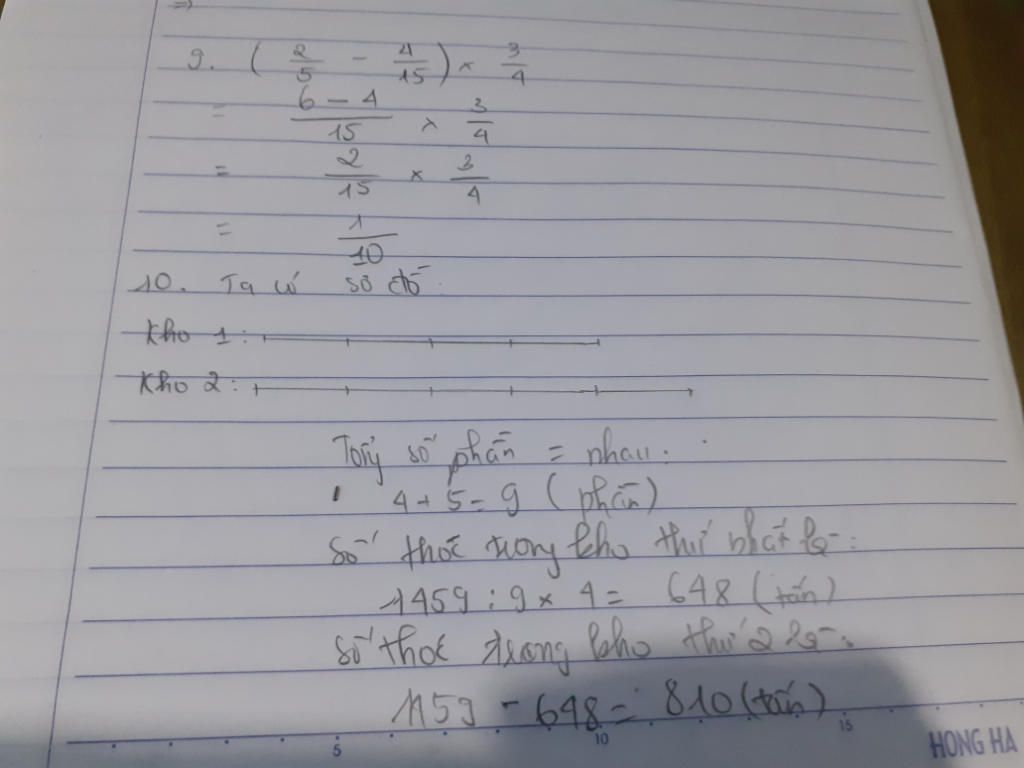 =)
9. ( 2/5 - 4/15 ) × 3/4
= 6 - 4/15 × 3/4
= 2/15 × 3/4
= 1/10
10. Ta có sơ đồ:
Kho 1:
Kho 2:
Tổng số phần = nhau:
4 + 5 = 9 ( phần)
Số thóc trong kho thứ nhất là:
1459 : 9 × 4 = 648 (tấn)
số thóc trong kho thứ 2 là:
1459 - 648 = 810 (tấn)
5 10 15
HONG HA